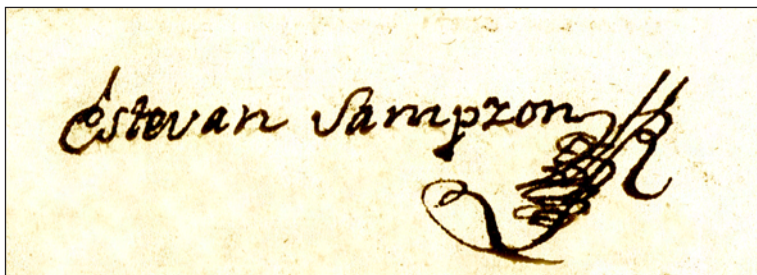 Estevan Sampzon